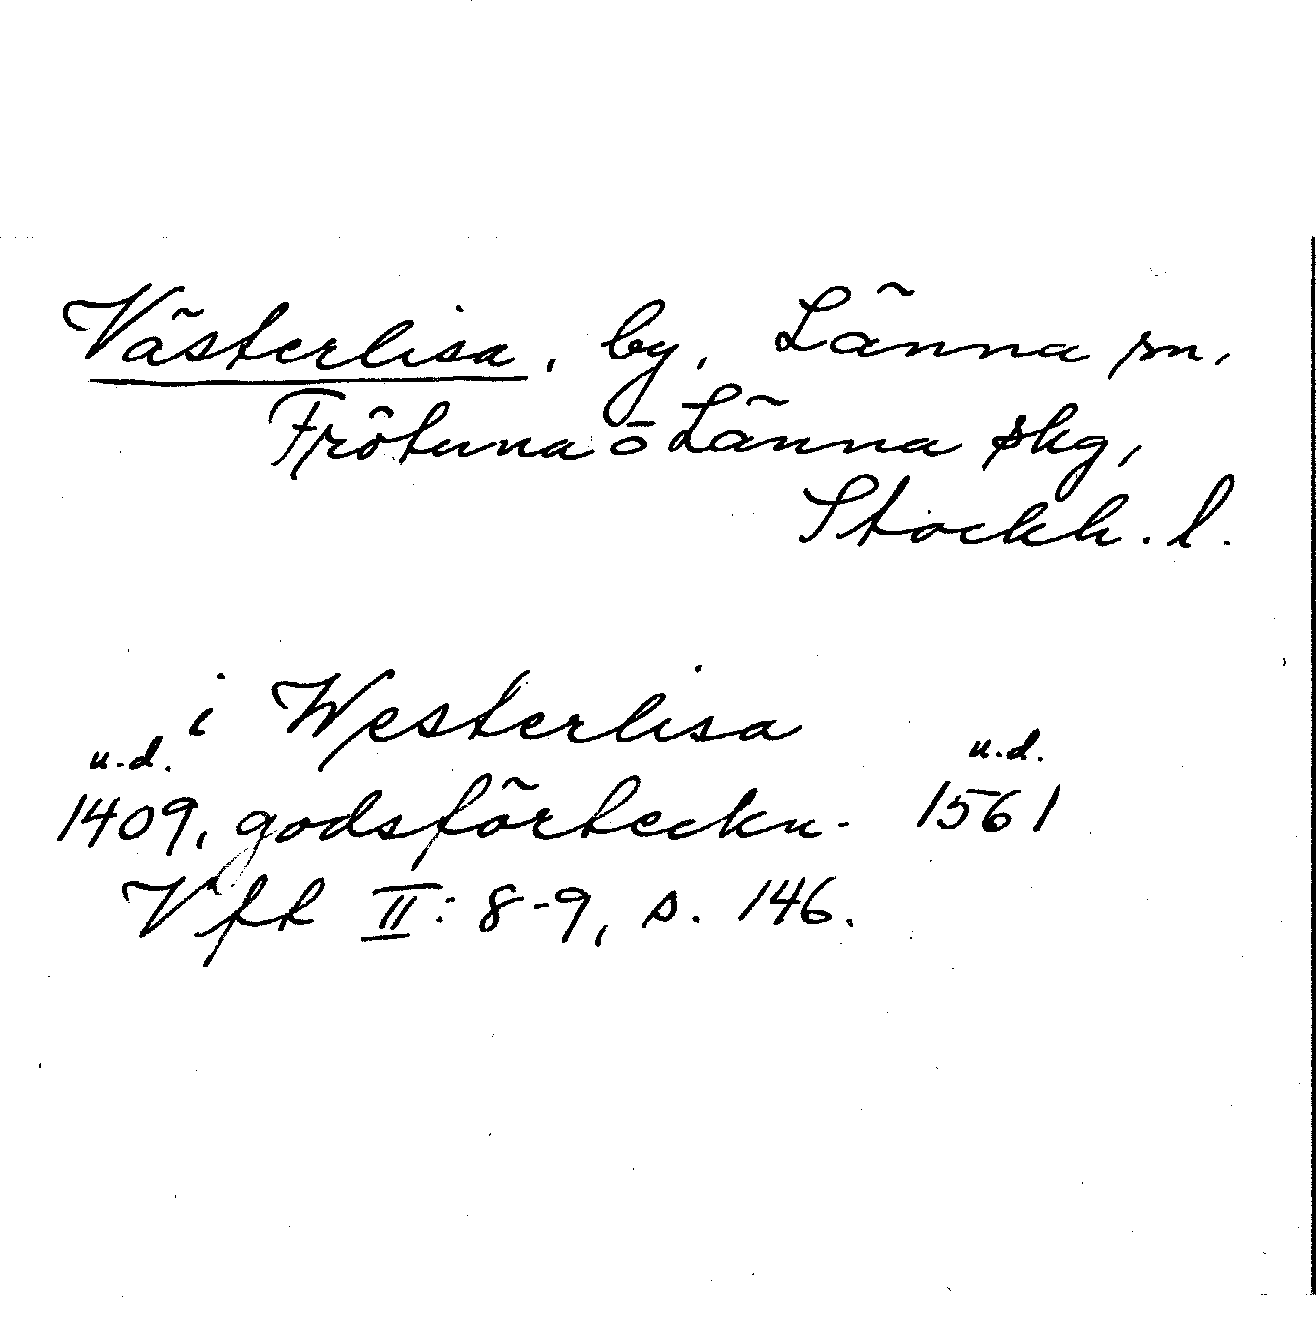 Västerlisa, by, Länna sn,
Frötuna o Länna skg,
Stockh. l.
i Westerlisa
u.d. u.d.
1409, godsförteckn. 1561
Vft II: 8-9, s. 146.